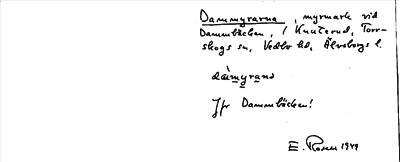 Dammyrarna, myrmark vid
Dammbäcken, i Knuterud, Torr-
skogs sn, Vedbo hd, Älvsborgs l.
dàmyrand
Jfr Dammbäcken!
E. Rosen 1949